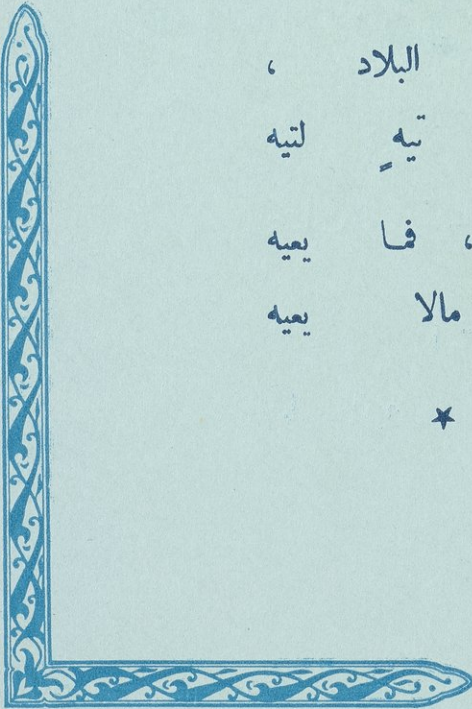 البلاد ،
تيهٍ لتيه
، فما يعيه
مالا يعيه